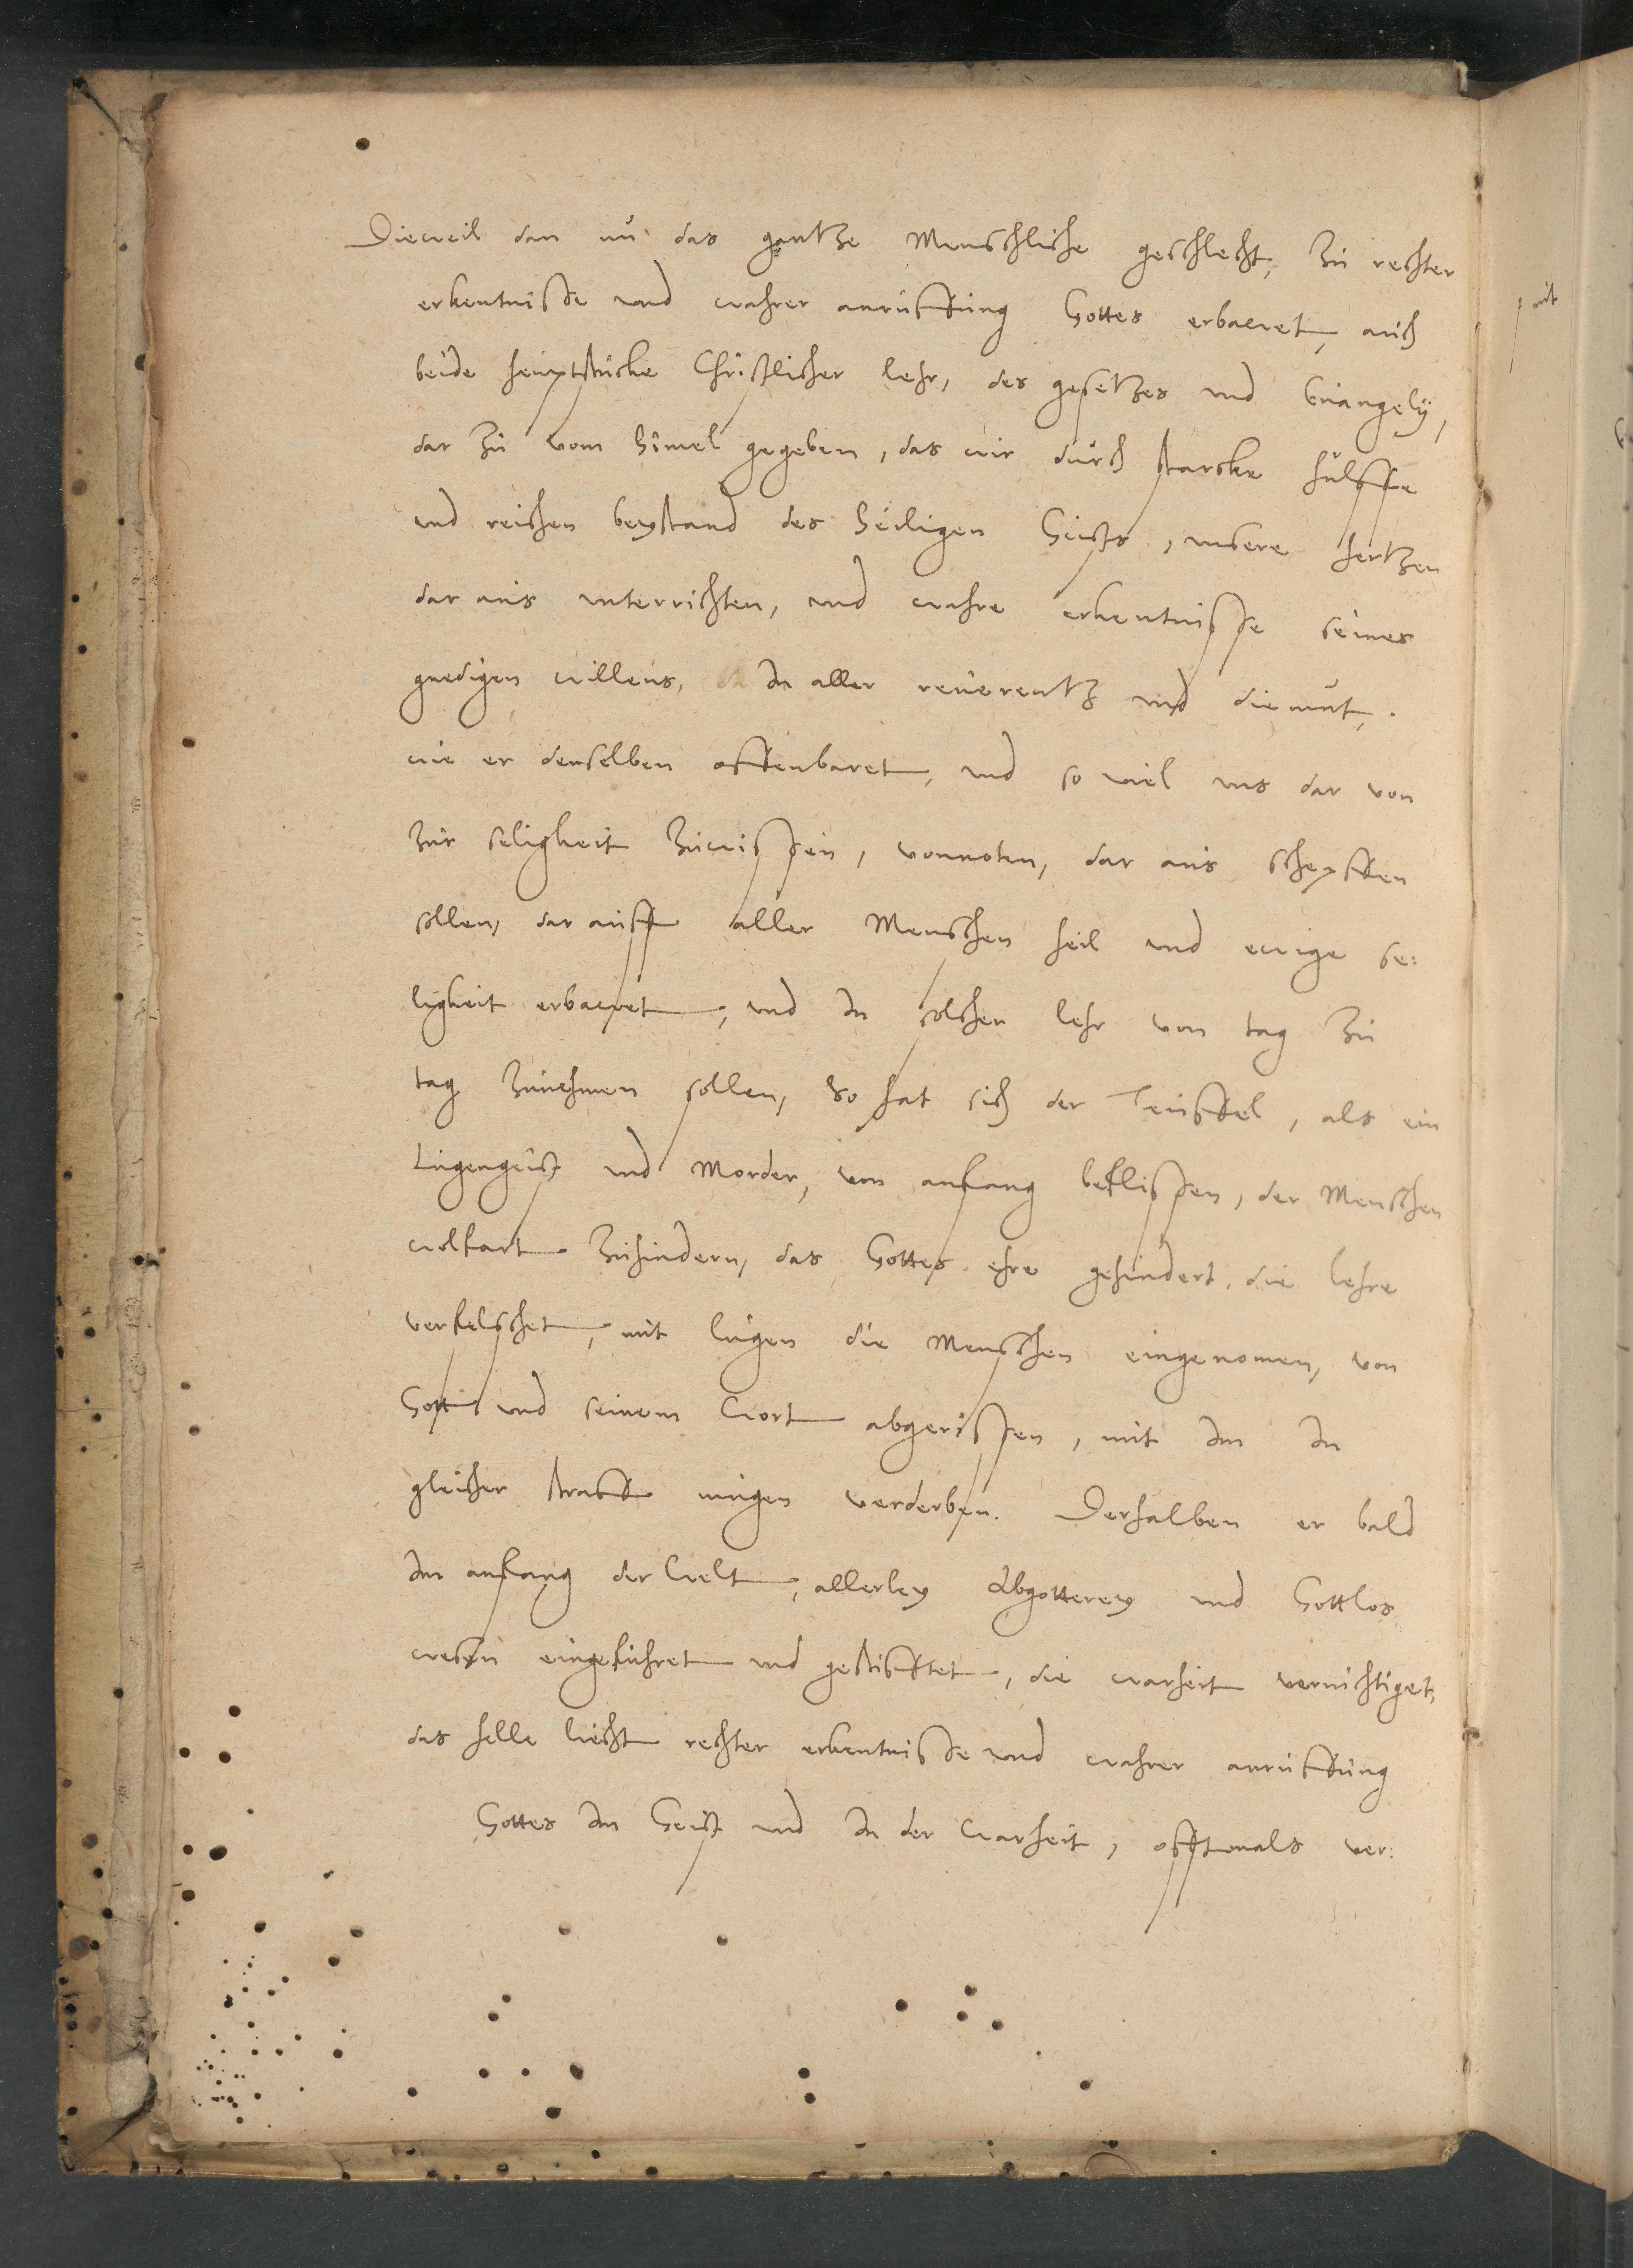 Dieweil dan nu das gantze Menschliche geschlecht, zu rechter
erkentnisse vnd wahrer anruffung Gottes erbawet, auch
beide heuptstucke Christlicher lehr, des gesetzes vnd Euangelij,
dar zu vom himel gegeben, das wir durch starcke hulffe
vnd reichen beystand des heiligen Geists, vnsere hertzen
dar aus vnterrichten, vnd wahre erkentnisse seines
gnedigen willens, in aller reuerentz vnd diemut,
wie er denselben offenbaret, vnd so viel vns dar von
zur seligkeit zuwissen, vonnoten, dar aus schepffen
sollen, dar auff aller Menschen heil vnd ewige se:
ligkeit erbawet, vnd in solcher lehr von tag zu
tag zunehmen sollen, So hat sich der Teuffel, als ein
Lugengeist vnd Morder, von anfang beflissen, der Menschen
wolfart zuhindern, das Gottes ehre gehindert, die lehre
verfelschet, mit lugen die Menschen eingenomen, von
Gott vnd seinem Wort abgerissen, mit im in
gleicher straff mugen verderben. Derhalben er bald
im anfang der Welt, allerley Abgotterey vnd Gottlos
wesen eingefuhret vnd gestifftet, die warheit vernichtiget,
das helle liecht rechter erkentnisse vnd wahrer anruffung
Gottes im Geist vnd in der Warheit, offtmals ver:
mit